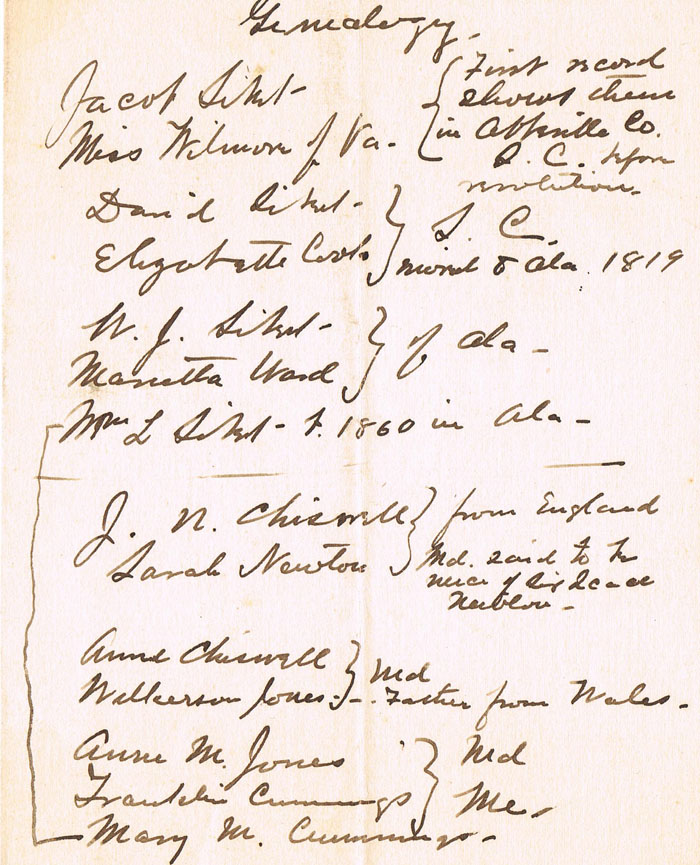 Genealogy.
Jacob Sikes - { First record
shows them
Miss Wilmore of Va. - in Abbeville Co.
S. C. before
revolution.
David Sikes - } S. C.
Elizabeth Cook moved to Ala. 1819
W. J. Sikes - } of Ala -
Marietta Ward
Wm L Sikes - b. 1860 in Ala -
J. N. Chiswell } from England
Sarah Newton Md. said to be
niece of Sir Isaac
Newton -
Anne Chiswell } Md
Wilkerson Jones - Father from Wales -
Anne M. Jones } Md
Franklin Cummings Me -
Mary M. Cummings -